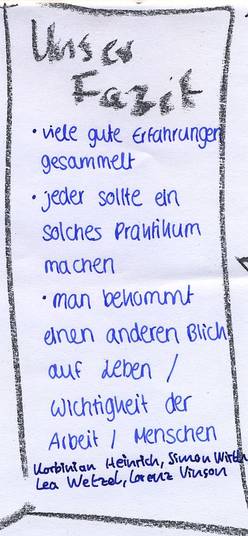 Unser
Fazit
• viele gute Erfahrungen
gesammelt
• jeder sollte ein
solches Praktikum
machen
• man bekommt
einen anderen Blick
auf Leben /
Wichtigkeit der
Arbeit / Menschen
Korbinian Heinrich, Simon Wirth
Lea Wetzel, Lorenz Vinson